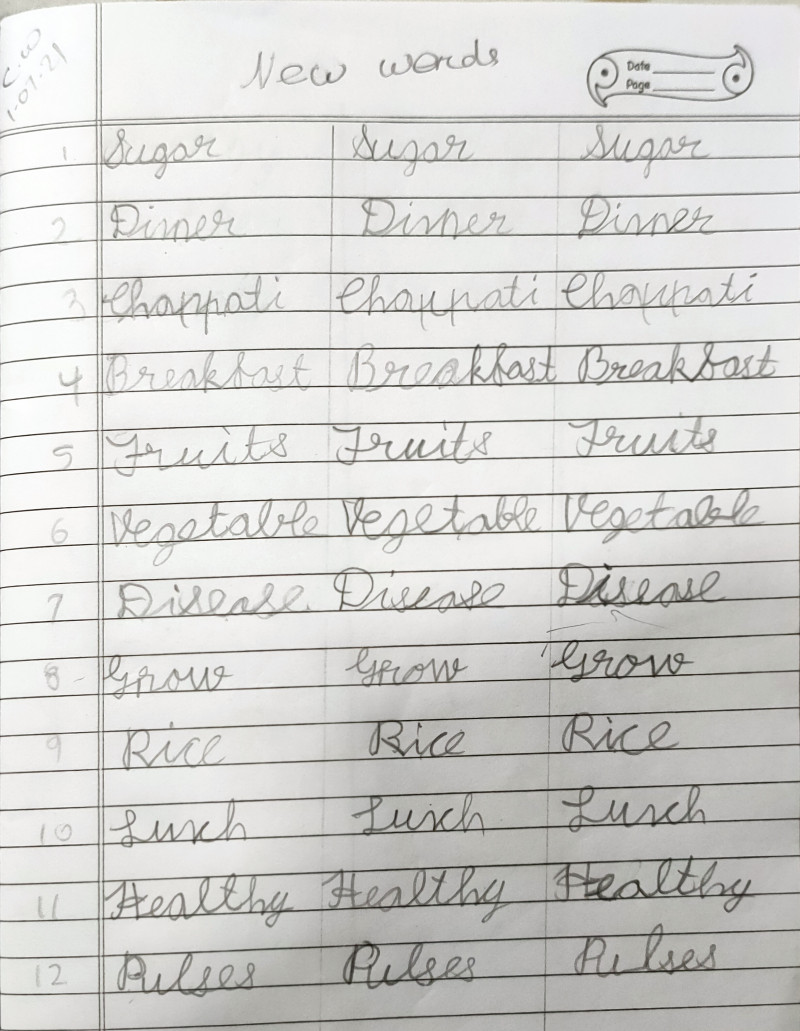 C.W
1-07-21
New words
Date
Page
1 Sugar Sugar Sugar
2 Dinner Dinner Dinner
3 Chappati Chappati Chappati
4 Breakfast Breakfast Breakfast
5 Fruits Fruits Fruits
6 Vegetable Vegetable Vegetable
7 Disease. Disease Disease
8- Grow Grow Grow
9 Rice Rice Rice
10 Lunch Lunch Lunch
11 Healthy Healthy Healthy
12 Pulses Pulses Pulses